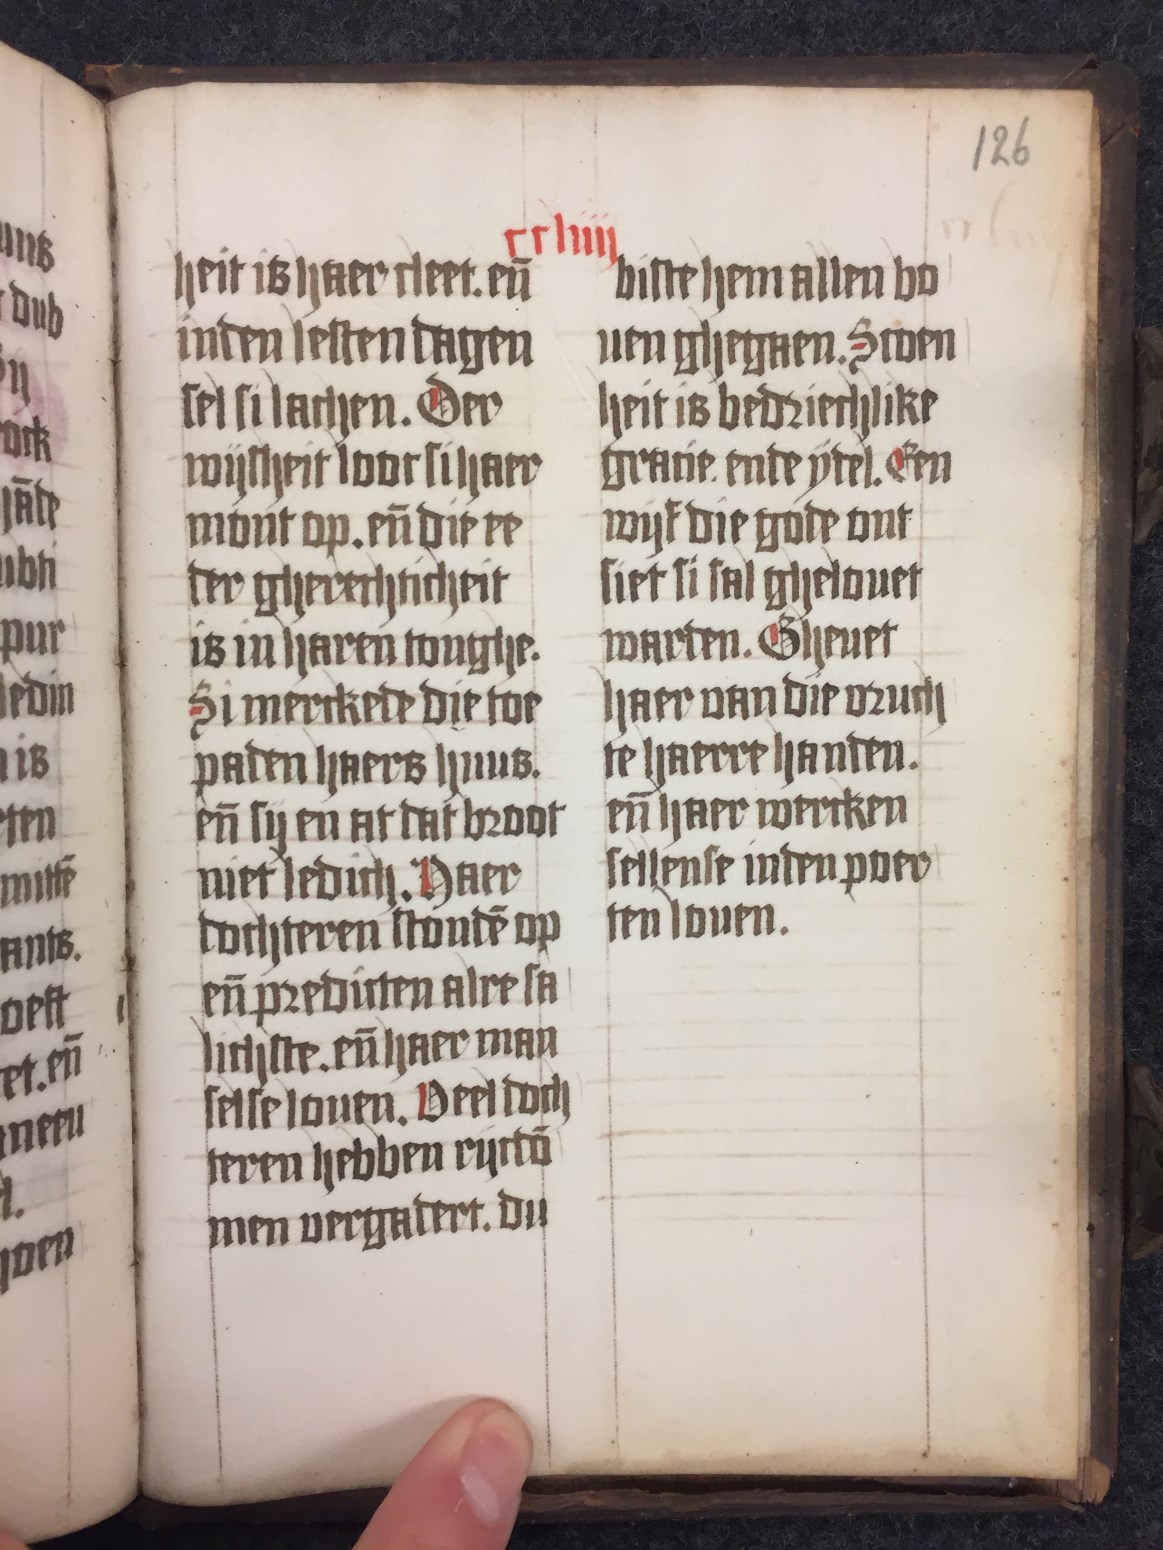 126
ccliiij
heit is haer cleet. en̄
inden lesten dagen
sel si lachen. Der
wijsheit looc si haer
mont op. en̄ die ee
der gherechticheit
is in haren tonghe.
Si merckede die toe
paden haers huus.
en̄ sij en at dat broot
niet ledich. Haer
dochteren stondē op
en̄ predicten alre sa
lichste. en̄ haer man
selse louen. Veel doch
teren hebben rijcdō
men vergadert. du
biste hem allen bo
uen ghegaen. Scoen
heit is bedriechlike
gracie. ende ÿdel. Een
wijf die gode ont
siet si sal ghelouet
warden. Gheuet
haer van die vruch
te haerre handen.
en̄ haer wercken
sellense inden poer
ten louen.